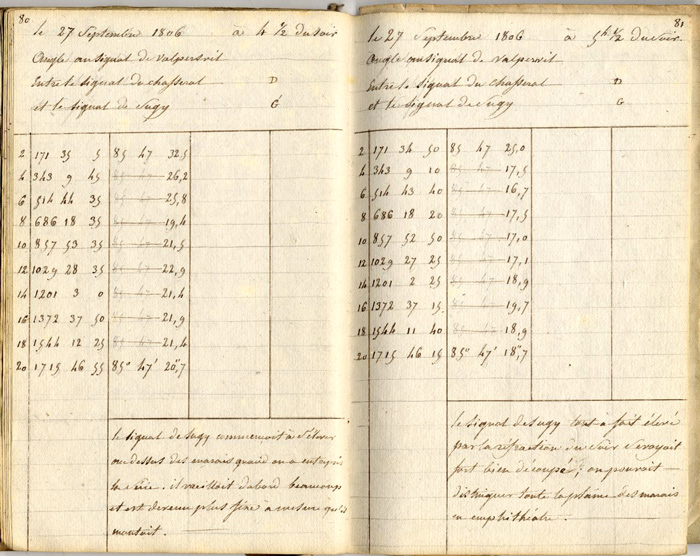 80
le 27 Septembre 1806 à 4 ½ du Soir
Angle au signal de Valpersvil
Entre le signal du chasseral D
et le signal de Sugy G
2 171 35 5 85 47 32,5
4 343 9 45 85 47 26,2
6 514 44 35 85 47 25,8
8 686 18 35 85 47 19,4
10 857 53 35 85 47 21,5
12 1029 28 35 85 47 22,9
14 1201 3 0 85 47 21,4
16 1372 37 50 85 47 21,9
18 1544 12 25 85 47 21,4
20 1715 46 55 85° 47' 20",7
le signal de Sugy commencoit à S'élever
au dessus des marais quand on a
la Série. il vacilloit d'abord beaucoup
et est devenu plus fixe a mesure qu'il
montait.
81
le 27 Septembre 1806 à 5h ½ du Soir.
Angle au signal de Valpersvil
Entre le signal du Chasseral D
et le signal de Sugy G
2 171 34 50 85 47 25,0
4 343 9 10 85 47 17,5
6 514 43 40 85 47 16,7
8 686 18 20 85 47 17,5
10 857 52 50 85 47 17,0
12 1029 27 25 85 47 17,1
14 1201 2 25 85 47 18,9
16 1372 37 15 85 47 19,7
18 1544 11 40 85 47 18,9
20 1715 46 15 85° 47' 18",7
le signal de Sugy tout à fait élevé
par la refraction du Soir Se voyait
fort bien decoupé; on pouvait
distinguer toute la plaine des marais
en emphithéatre.